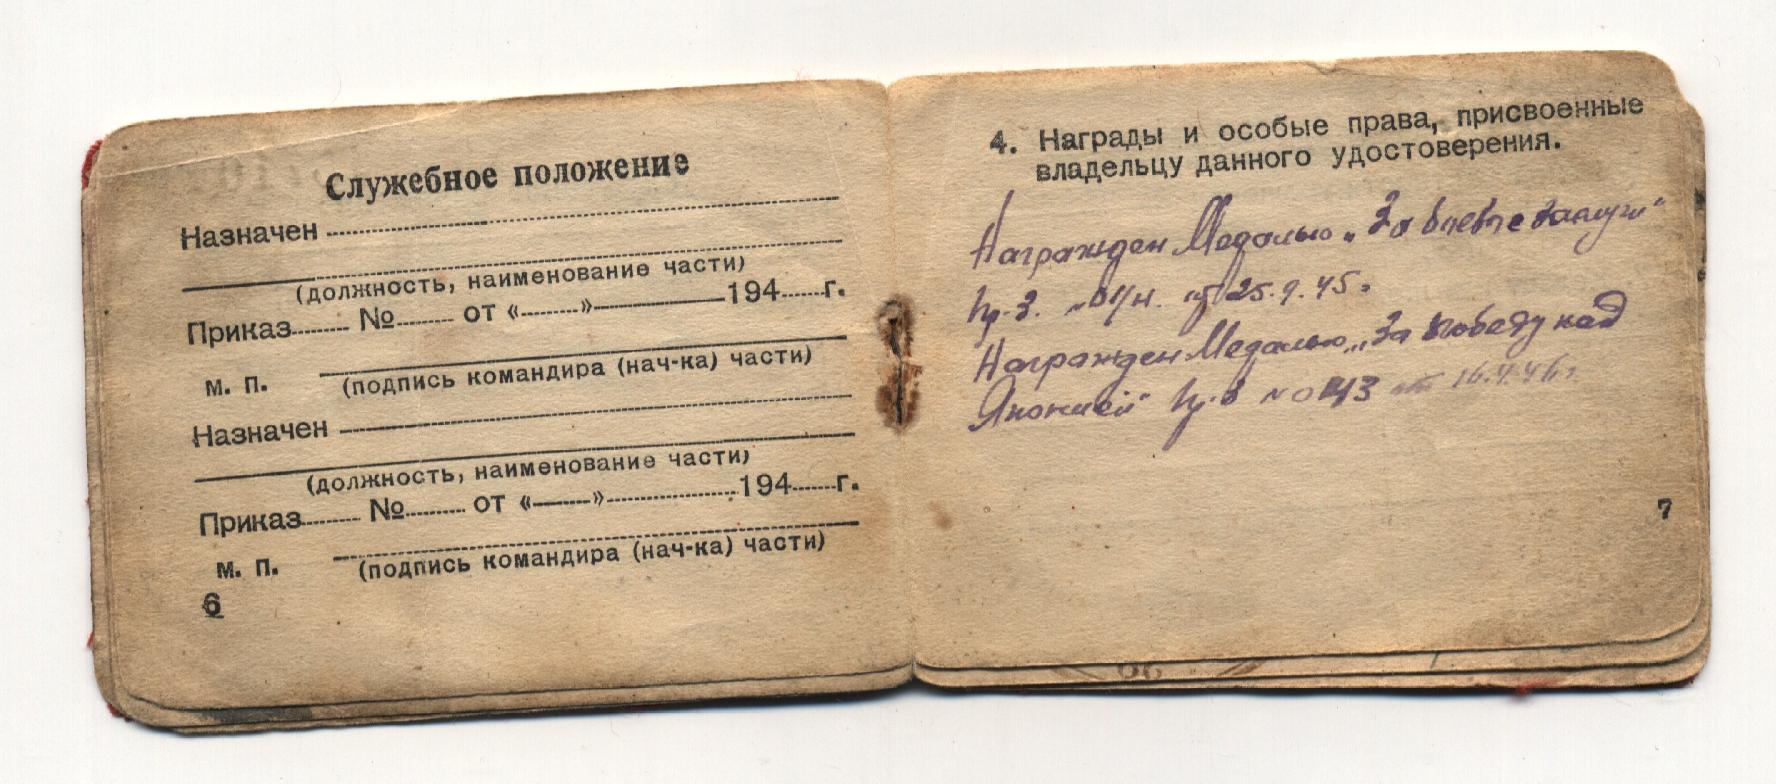 Служебное положение
Назначен
(должность, наименование части)
Приказ № от « » 194 г.
м. п. (подпись командира (нач-ка) части)
Назначен
(должность, наименование части)
Приказ № от « » 194 г.
м. п. (подпись командира (нач-ка) части)
6
4. Награды и особые права, присвоенные
владельцу данного удостоверения.
Награжден Медалью „За боевые заслуги"
от 25.9.45г.
Награжден Медалью „За победу над
Японией" от 16.4.46г.
7